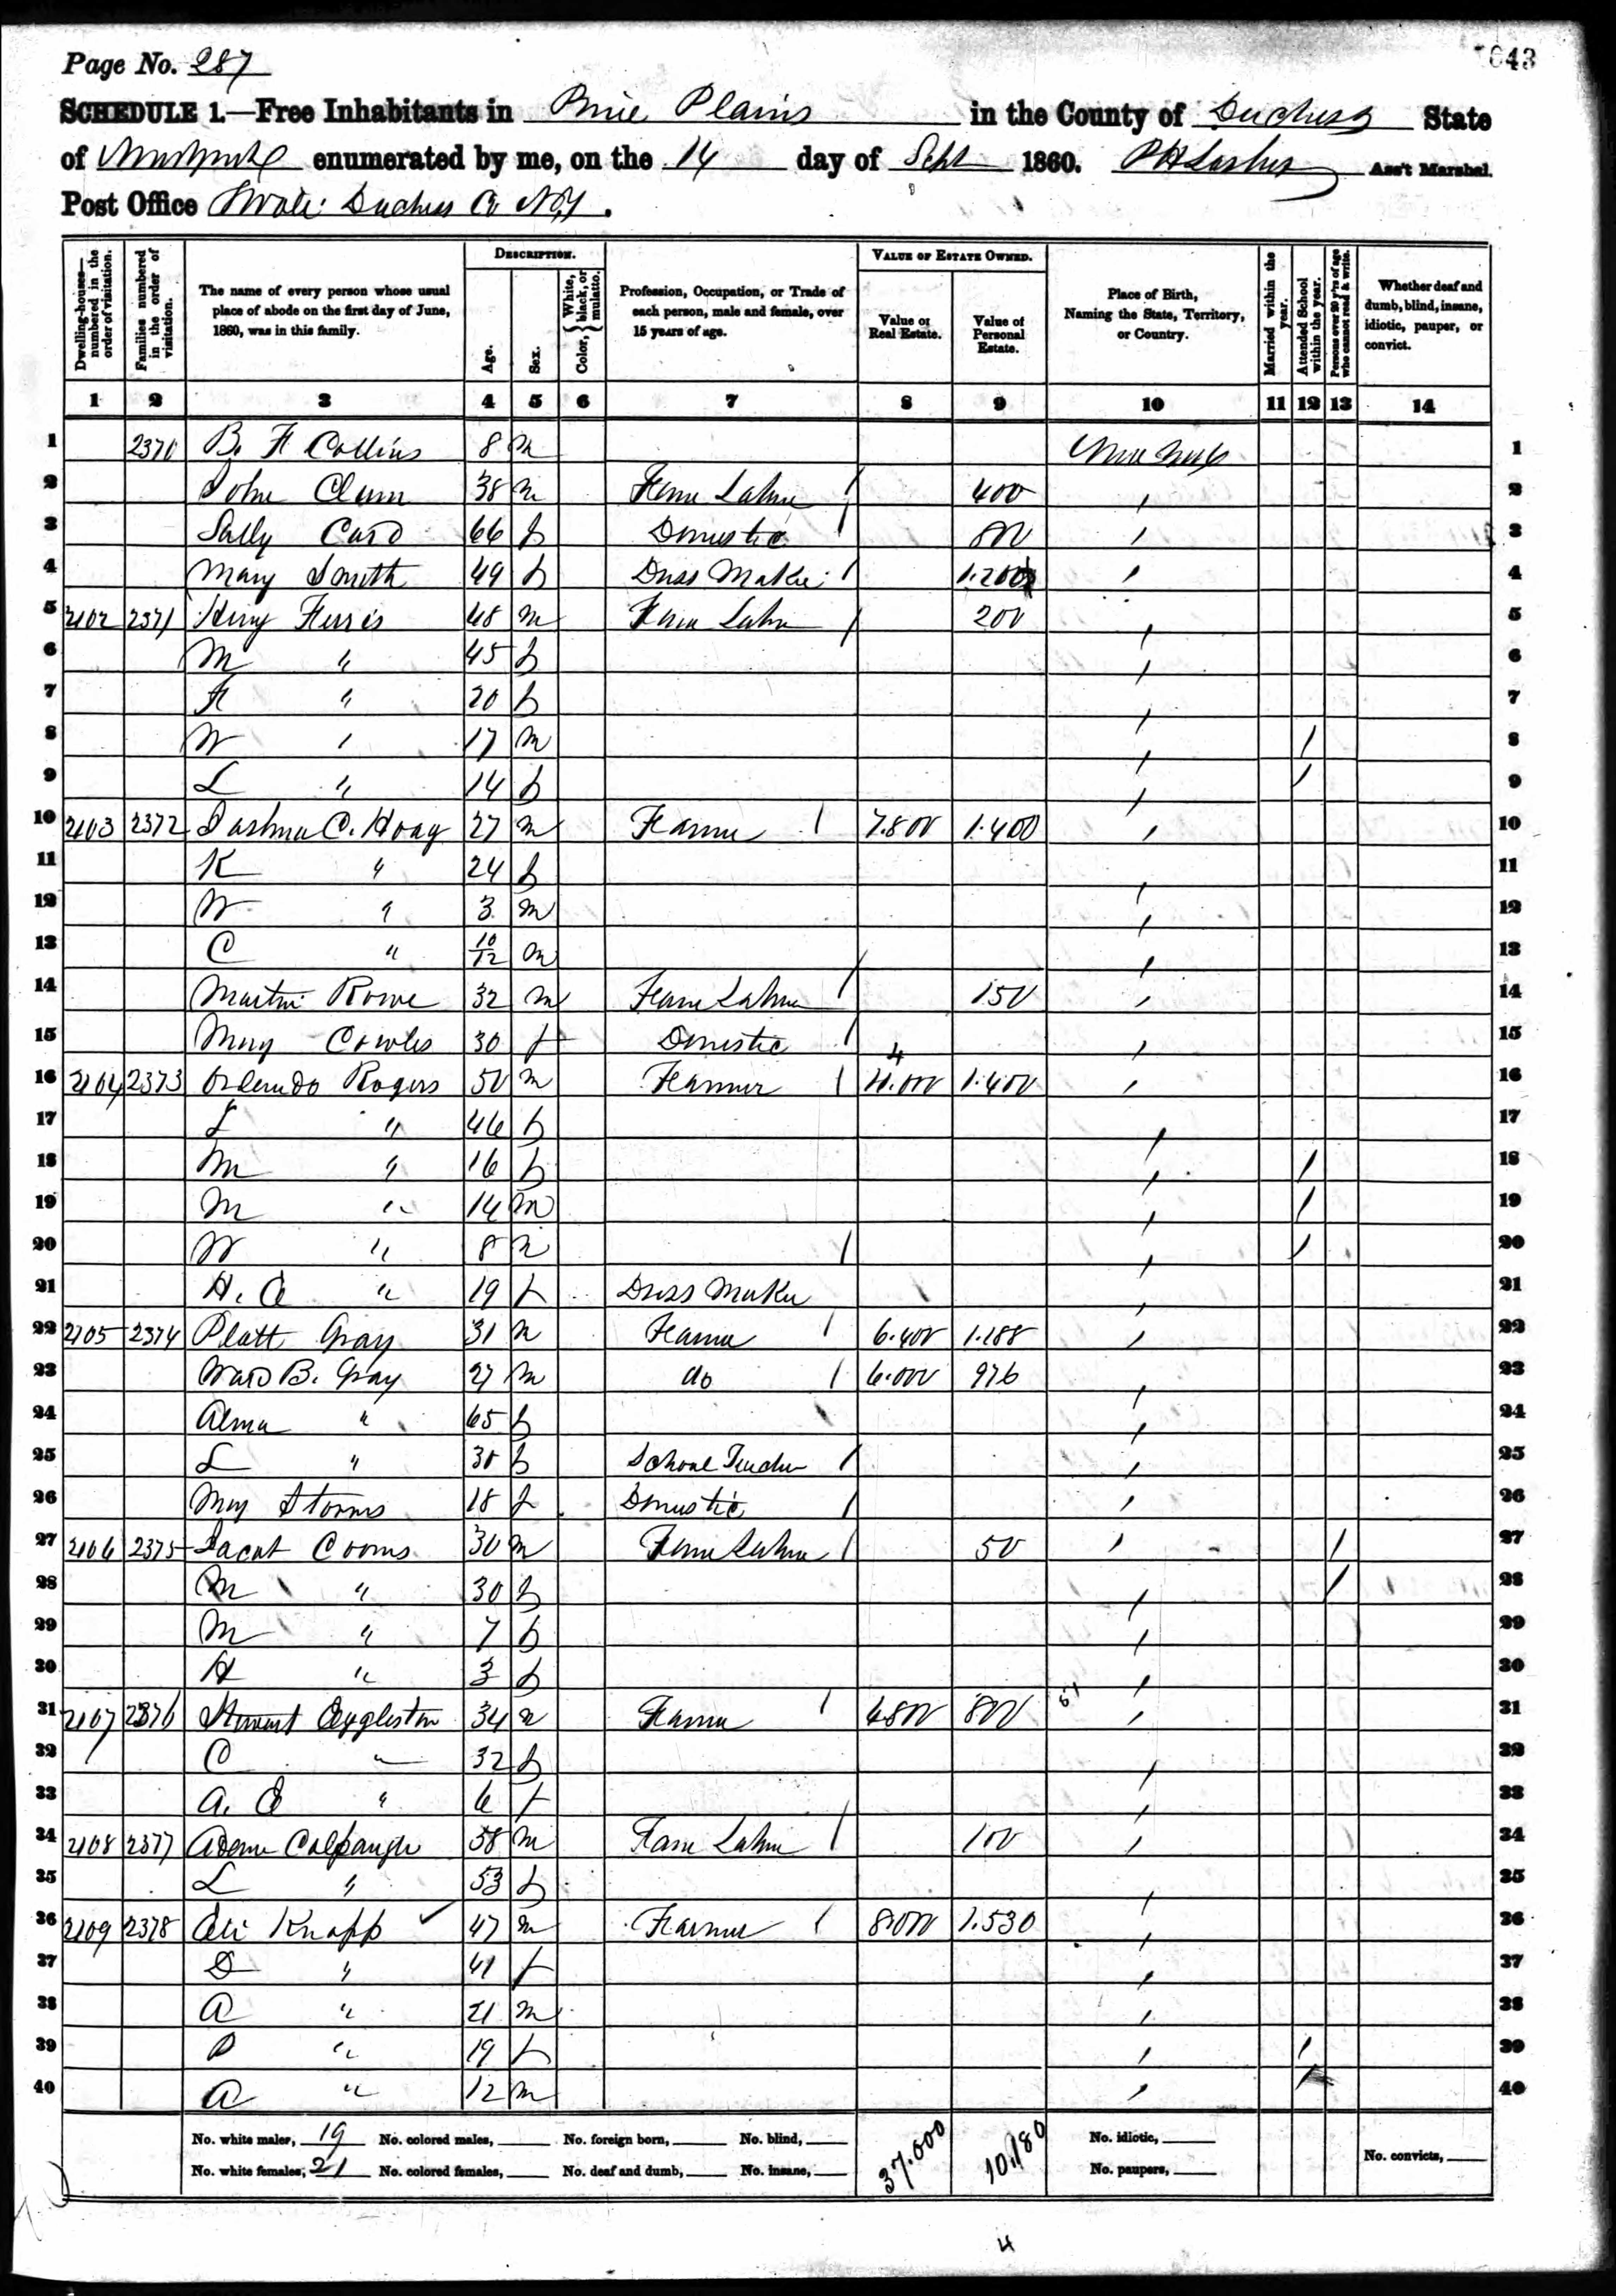 643
Page No. 287
SCHEDULE 1.—Free Inhabitants in Pine Plains in the County of Duchess State
of enumerated by me, on the 14 day of Sept 1860. Ass't Marshal.
Post Office Duchess Co N.Y.
Dwelling-houses—numbered in the order of visitation.
Families numbered in the order of visitation.
The name of every person whose usual place of abode on the first day of June, 1860, was in this family.
DESCRIPTION.
Age.
Sex.
Color, { White, black, or mulatto.
Profession, Occupation, or Trade of each person, male and female, over 15 years of age.
VALUE OF ESTATE OWNED.
Value of Real Estate.
Value of Personal Estate.
Place of Birth, Naming the State, Territory, or Country.
Married within the year.
Attended School within the year.
Persons over 20 y'rs of age who cannot read & write.
Whether deaf and dumb, blind, insane, idiotic, pauper, or convict.
1 2 3 4 5 6 7 8 9 10 11 12 13 14
1 2370 B. F Collins 8 m 1
2 John Clum 38 m Farm Labr / 400 " 2
3 Sally Card 66 f Domestic / 800 " 3
4 Mary Smith 49 f Dress Maker / 1.200 " 4
5 2102 2371 Henry Ferris 48 m Farm Labr / 200 " 5
6 M " 45 f " 6
7 F " 20 f " 7
8 W " 17 m " / 8
9 L " 14 f " / 9
10 2103 2372 Joshua C. Hoag 27 m Farmer / 7.800 1.400 " 10
11 K " 24 f " 11
12 W " 3 m " 12
13 C " 10/12 m " 13
14 Martin Rowe 32 m Farm Labr / 150 " 14
15 Mary Cowles 30 f Domestic / " 15
16 2104 2373 Orlando Rogers 50 m Farmer / 4 1.400 " 16
17 L " 46 f " 17
18 M " 16 f " / 18
19 M " 14 m " / 19
20 W " 8 m / " / 20
21 H. A " 19 f Dress Maker " 21
22 2105 2374 Platt Gray 31 m Farmer / 6.400 1.188 " 22
23 Ward B. Gray 27 m do / 6.000 976 " 23
24 Alma " 65 f " 24
25 L " 30 f School Teacher / " 25
26 Mary Storms 18 f Domestic / " 26
27 2106 2375 Jacob Cooms 30 m Farm Labr / 50 " / 27
28 M " 30 f " / 28
29 M " 7 f " 29
30 H " 3 f " 30
31 2107 2376 Stewart Eggleston 34 m Farmer / 4800 800 " 31
32 C " 32 f " 32
33 A. E " 6 f " 33
34 2108 2377 Adam Colpaugh 58 m Farm Labr / 100 " 34
35 L " 53 f " 35
36 2109 2378 Eli Knapp ✓ 47 m Farmer / 8.000 1.530 " 36
37 D " 41 f " 37
38 A " 21 m " 38
39 P " 19 f " / 39
40 A " 12 m " / 40
No. white males, 19 No. colored males, No. foreign born, No. blind, 37.000 10.180 No. idiotic,
No. white females, 21 No. colored females, No. deaf and dumb, No. insane, No. paupers, No. convicts,
4